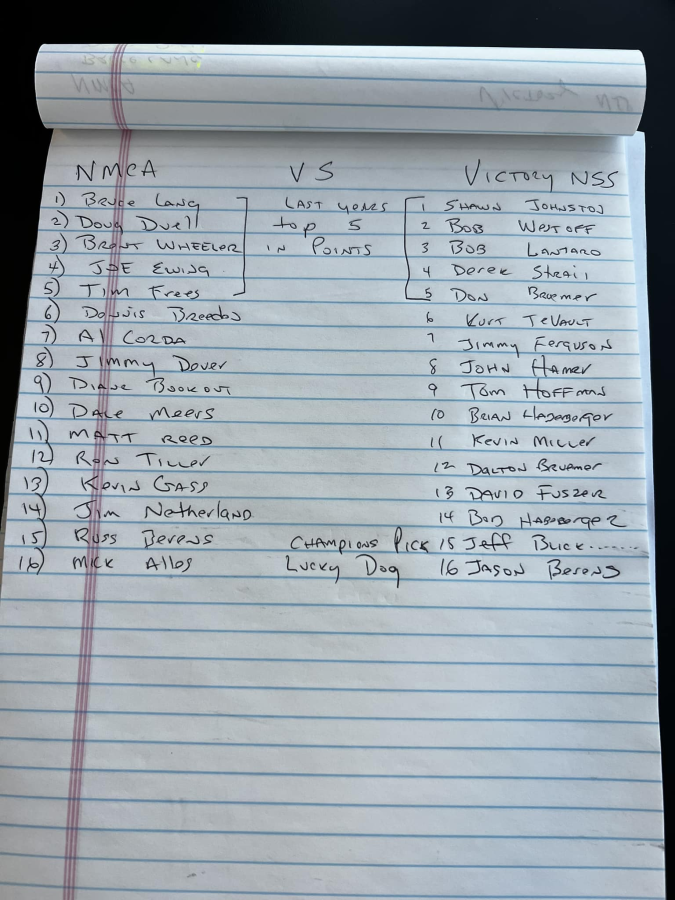 NMCA VS VICTORY NSS
1) Bruce Lang LAST years 1 SHAWN JOHNSTON
2) Doug Duell top 5 2 BOB WESTOFF
3) Brent WHEELER in POINTS 3 BOB LANTARO
4) JOE Ewing 4 Derek Strail
5) Tim Frees 5 DON Bruemer
6) Donnis Breedon 6 KURT TeVAULT
7) Al CORDA 7 Jimmy Ferguson
8) Jimmy Dover 8 JOHN Hamer
9) Diane Bookout 9 Tom HOFFMAN
10) Dale Meers 10 BRIAN HADEBORGER
11) MATT REED 11 KEVIN MILLER
12) RON Tiller 12 DALTON Bruemer
13) Kevin Gass 13 DAVID FUSZER
14) Jim Netherland 14 Bob HADEBORGER
15) Russ Berens CHAMPIONS PICK 15 Jeff Buck......
16) Mick Alles Lucky Dog 16 JASON Berens